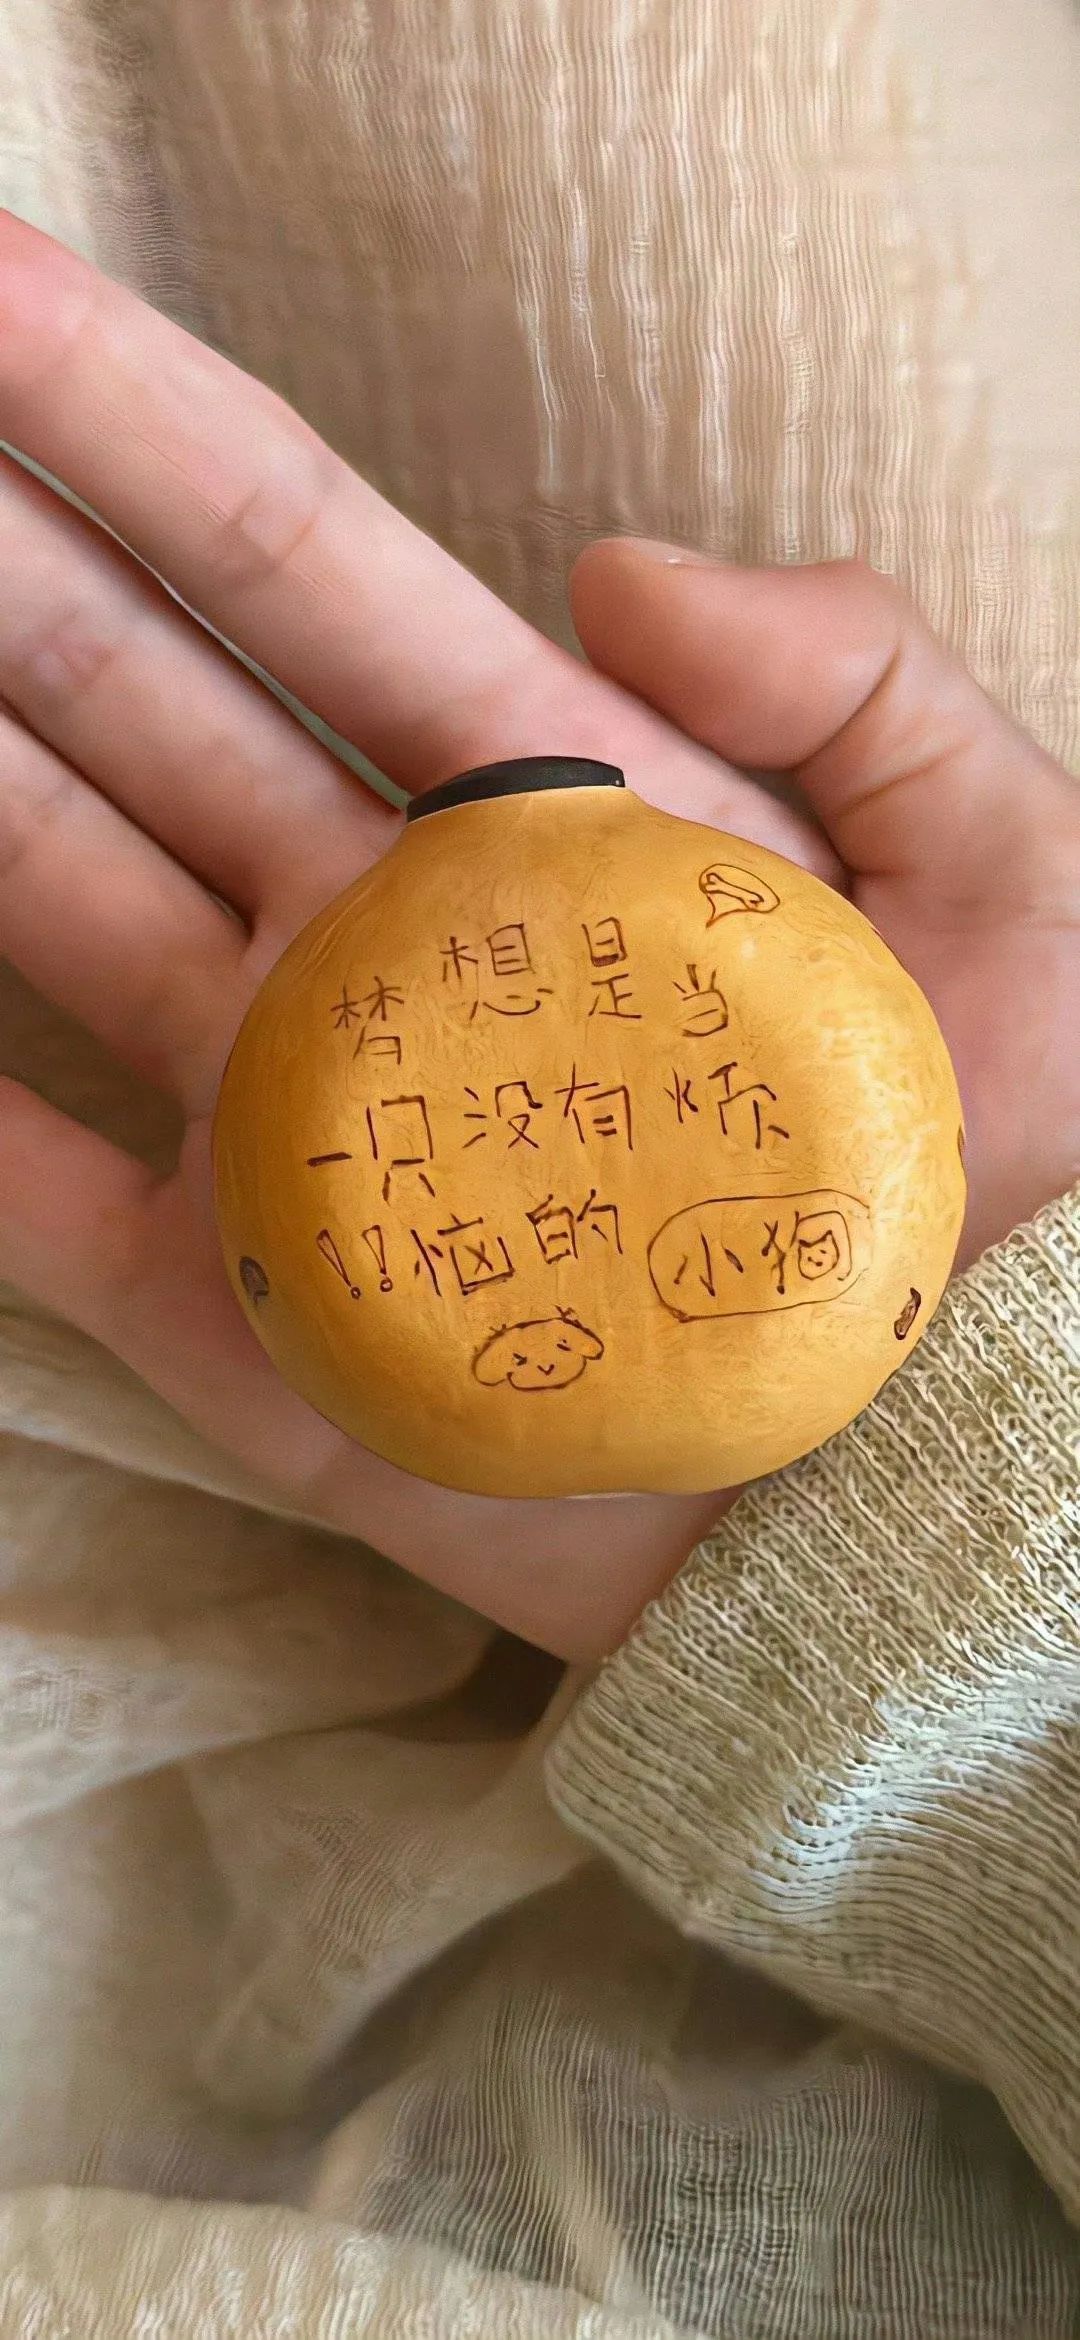 梦想是当
一只没有烦
!!恼的小狗